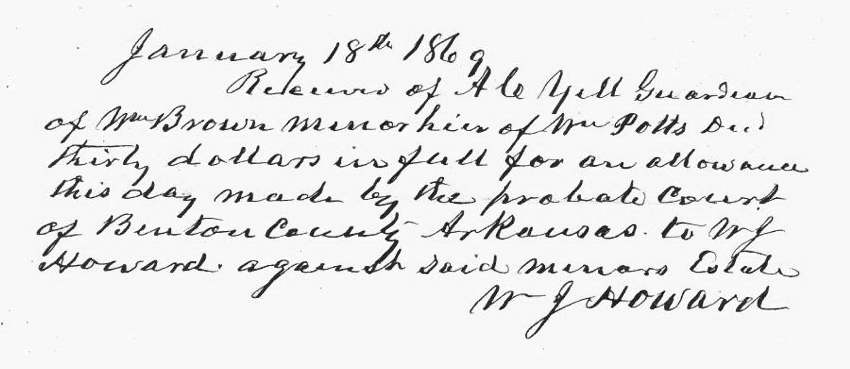 January 18th 1869
Receivd of A C Yell Guardian
of Wm Brown minor hier of Wm Potts Decd
thirty dollars in full for an allowance
this day made by the probate Court
of Benton County Arkansas. to W J
Howard. against said minors Estate
W J Howard